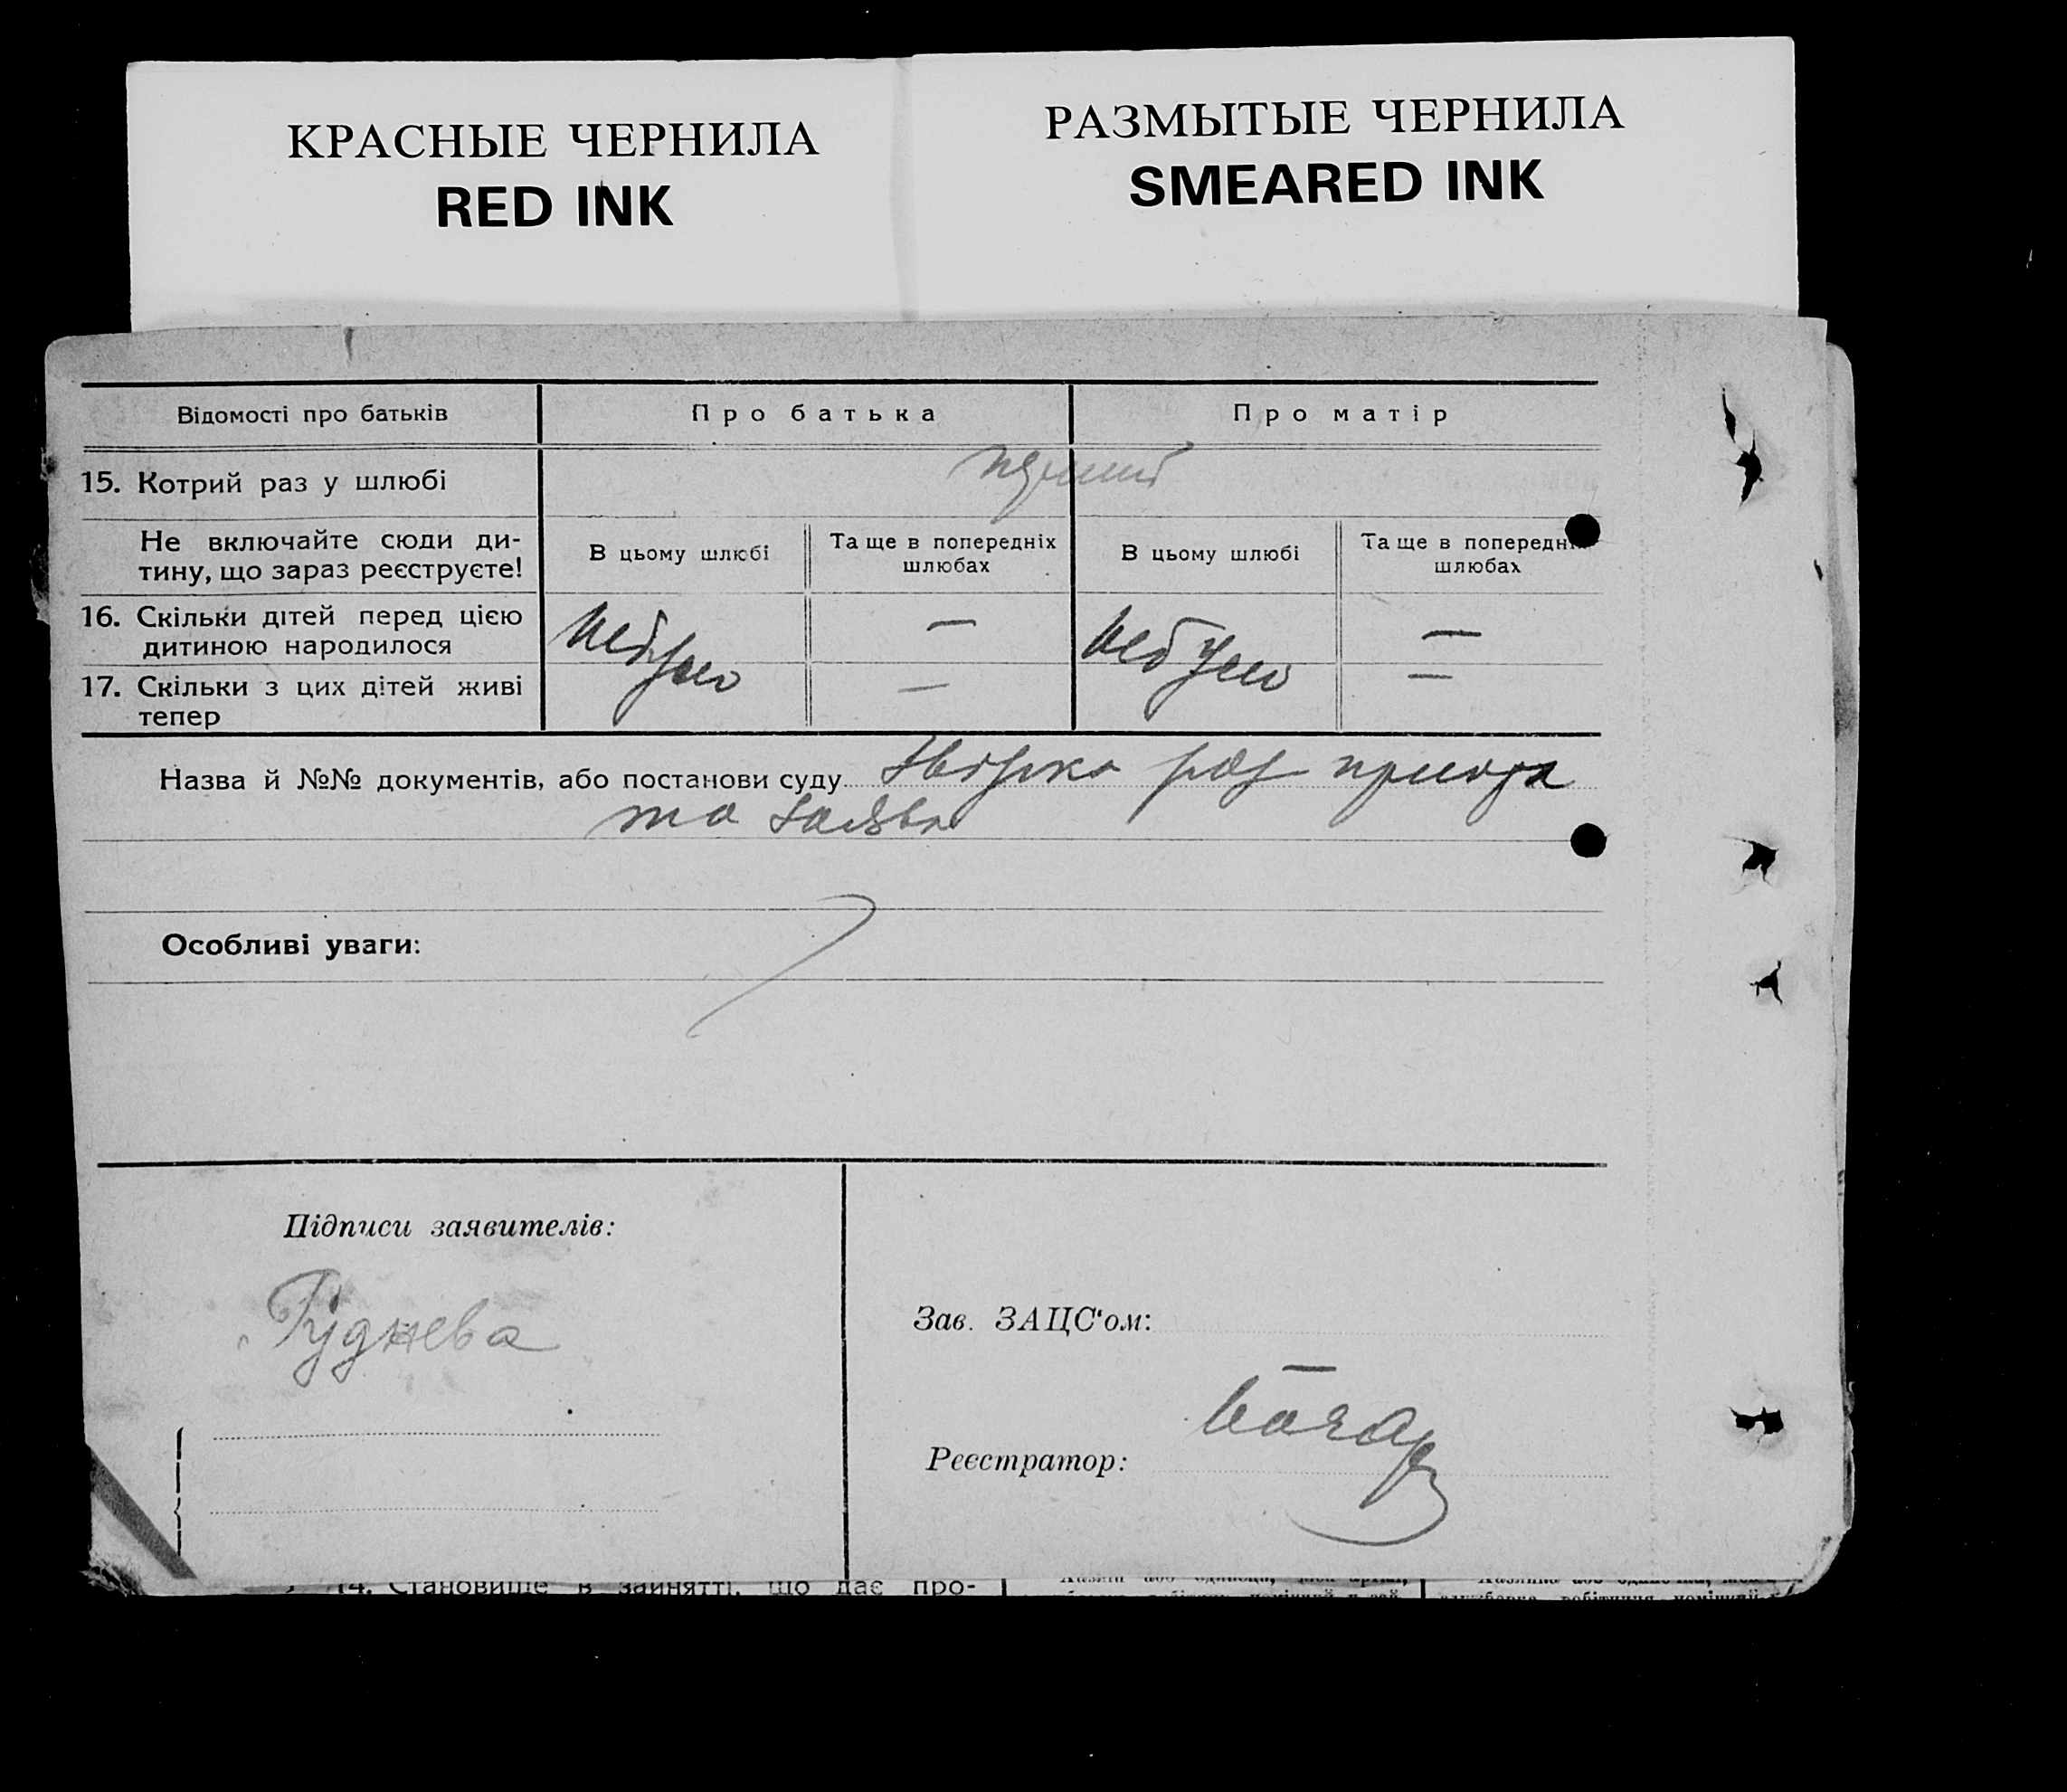 КРАСНЫЕ ЧЕРНИЛА
RED INK
РАЗМЫТЫЕ ЧЕРНИЛА
SMEARED INK
Відомості про батьків
Про батька
Про матір
15. Котрий раз у шлюбі
Не включайте сюди ди-
тину, що зараз реєструєте!
В цьому шлюбі
Та ще в попередніх
шлюбах
В цьому шлюбі
Та ще в попередніх
шлюбах
16. Скільки дітей перед цією
дитиною народилося
небуло
—
небуло
—
17. Скільки з цих дітей живі
тепер
—
—
Назва й №№ документів, або постанови суду
та заява
Особливі уваги:
Підписи заявителів:
Руднева
Зав. ЗАЦС'ом:
—
Реєстратор:
14. Становище в занятті, що дає про-